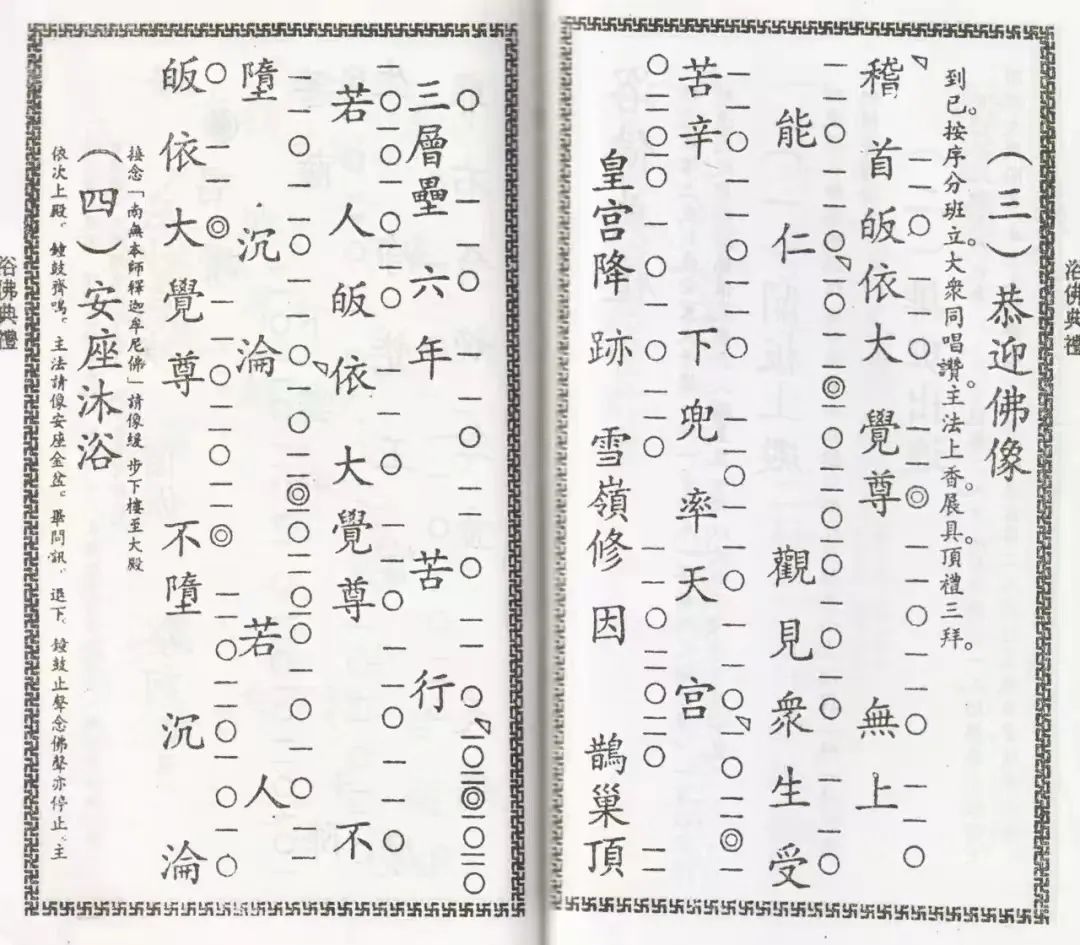 浴佛典禮
（三）恭迎佛像
到已。按序分班立。大衆同唱讚。主法上香。展具。頂禮三拜。
稽首皈依大覺尊　無上
能仁　觀見衆生受
苦辛下兜率天宮
皇宮降跡　雪嶺修因　鵲巢頂
三層壘　六年苦行
若人皈依大覺尊　不
墮沉淪　若人
皈依大覺尊　不墮沉淪
接念「南無本師釋迦牟尼佛」請像緩步下樓至大殿
（四）安座沐浴
依次上殿、鐘鼓齊鳴。主法請像安座金盆。畢問訊、退下、鐘鼓止聲念佛聲亦停止、主
浴佛典禮